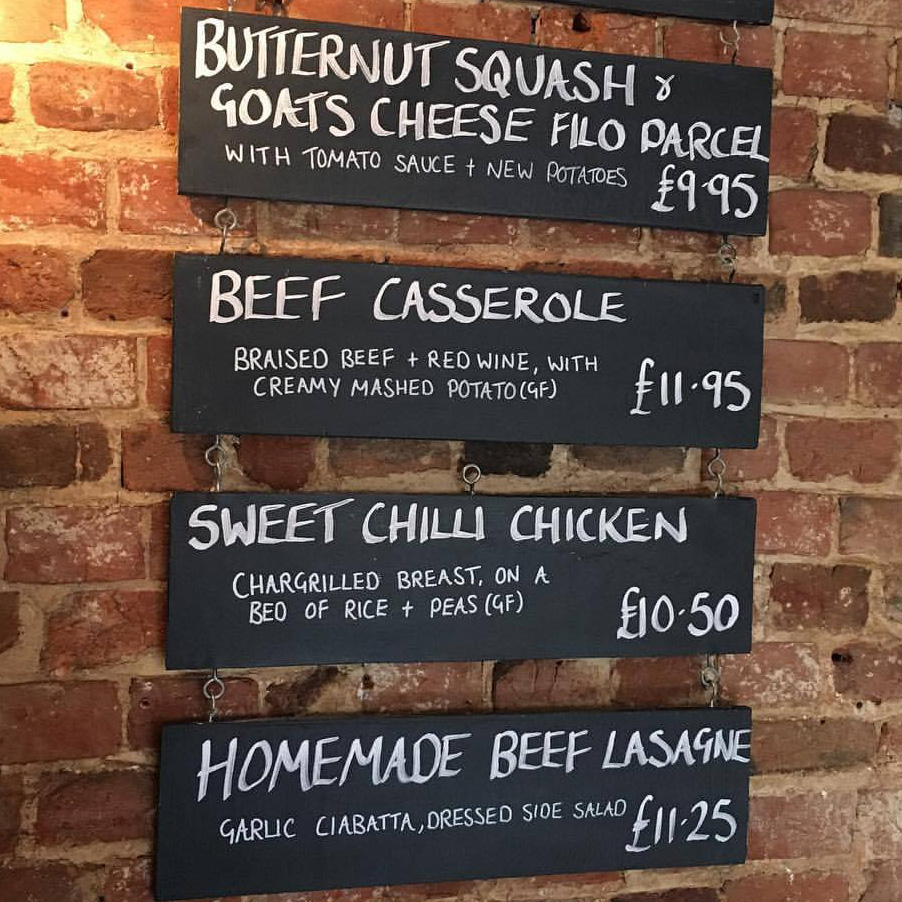 BUTTERNUT SQUASH &
GOATS CHEESE FILO PARCEL
WITH TOMATO SAUCE + NEW POTATOES
£9.95
BEEF CASSEROLE
BRAISED BEEF + RED WINE, WITH
CREAMY MASHED POTATO (GF)
£11.95
SWEET CHILLI CHICKEN
CHARGRILLED BREAST, ON A
BED OF RICE + PEAS (GF)
£10.50
HOMEMADE BEEF LASAGNE
GARLIC CIABATTA, DRESSED SIDE SALAD
£11.25